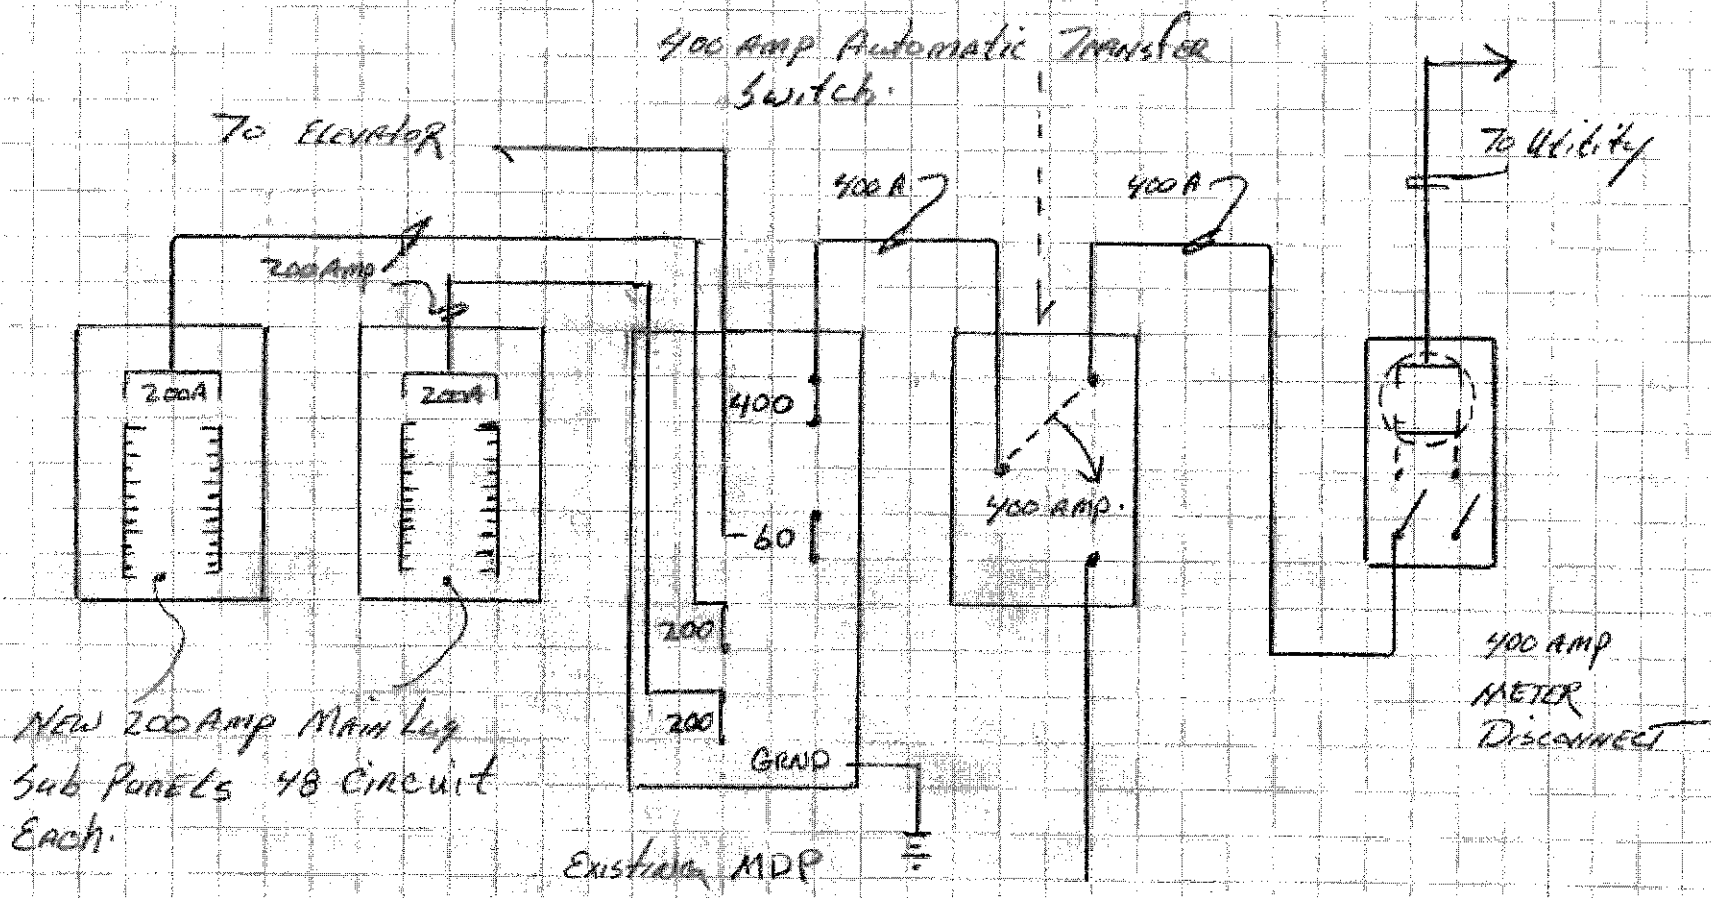 400 Amp Automatic Transfer
Switch.
To Elevator
To Utility
400 A
400 A
200 Amp
200A
200A
400
400 Amp.
-60
200
200
GRND
400 Amp
METER
Disconnect
New 200 Amp Main Lug
Sub Panels 48 Circuit
Each.
Existing MDP